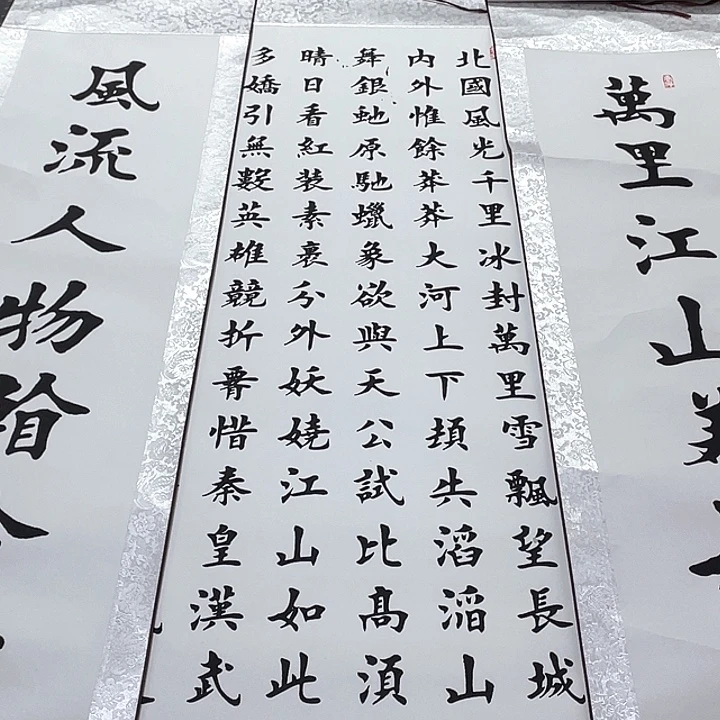 萬里江山
北國風光千里冰封萬里雪飄望長城
内外惟餘莽莽大河上下頓失滔滔山
舞銀虵原馳蠟象欲與天公試比髙須
晴日看紅裝素裹分外妖嬈江山如此
多嬌引無數英雄競折腰惜秦皇漢武
風流人物